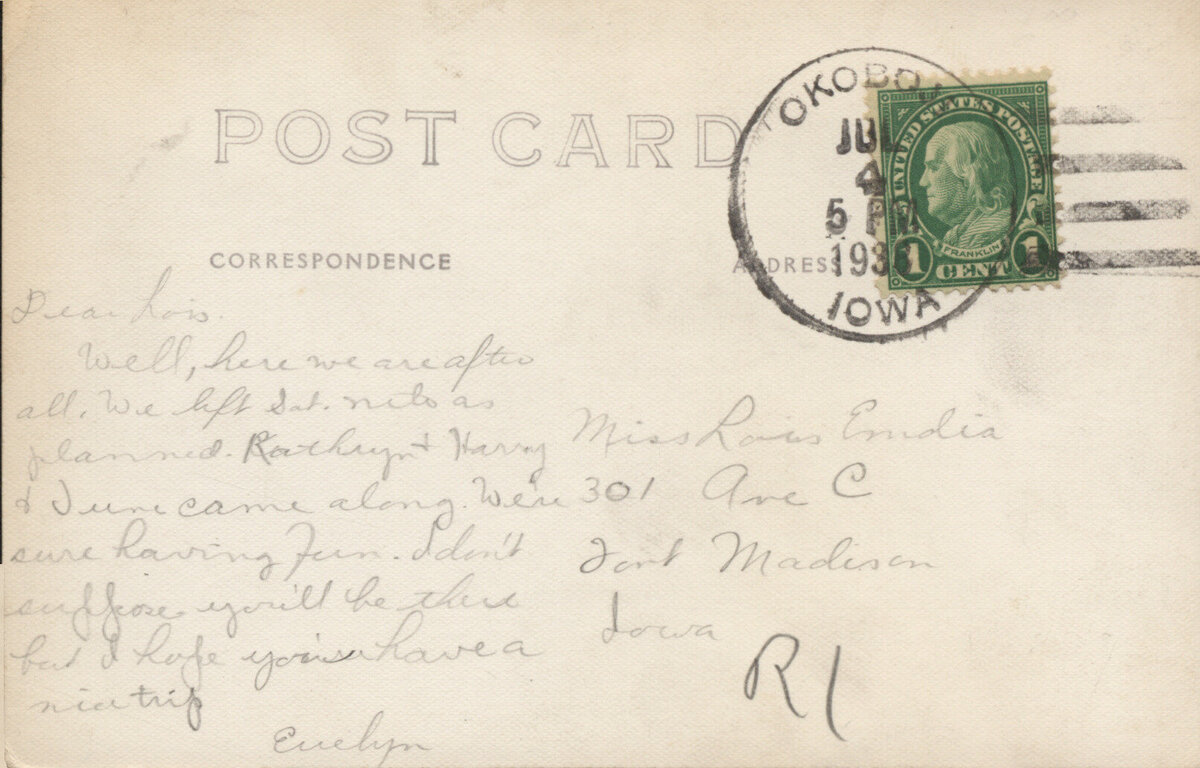 POST CARD
OKOBOJI
JUL
4
5 PM
1933
IOWA
UNITED STATES POSTAGE
FRANKLIN
1 CENT 1
CORRESPONDENCE
ADDRESS
Dear Lois.
Well, here we are after
all. We left Sat. nite as
planned. Kathryn & Harry
& June came along. We're
sure having fun. I don't
suppose you'll be there
but I hope you have a
nice trip
Evelyn
Miss Lois Emdia
301 Ave C
Fort Madison
Iowa
R1